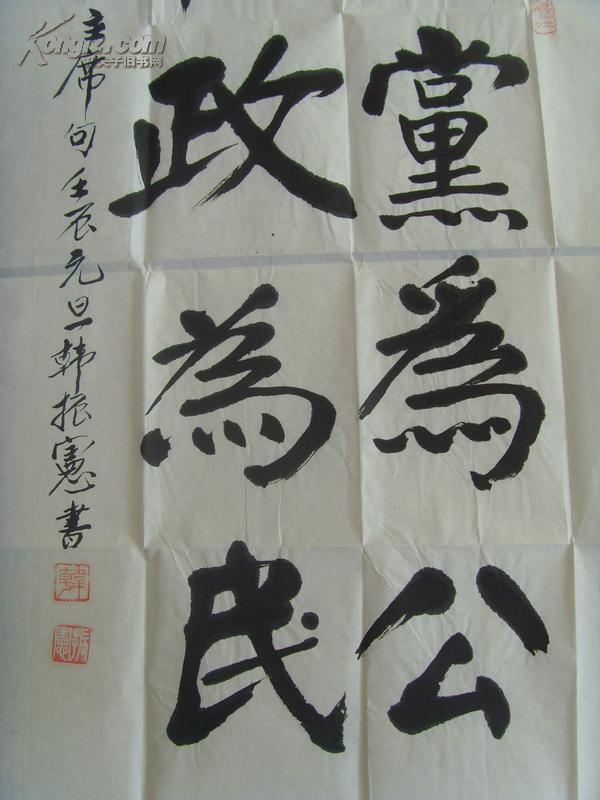 黨為公
政為民
主席句壬辰元旦韩振憲書
韓
振憲
Kongfz.com
孔夫子旧书网